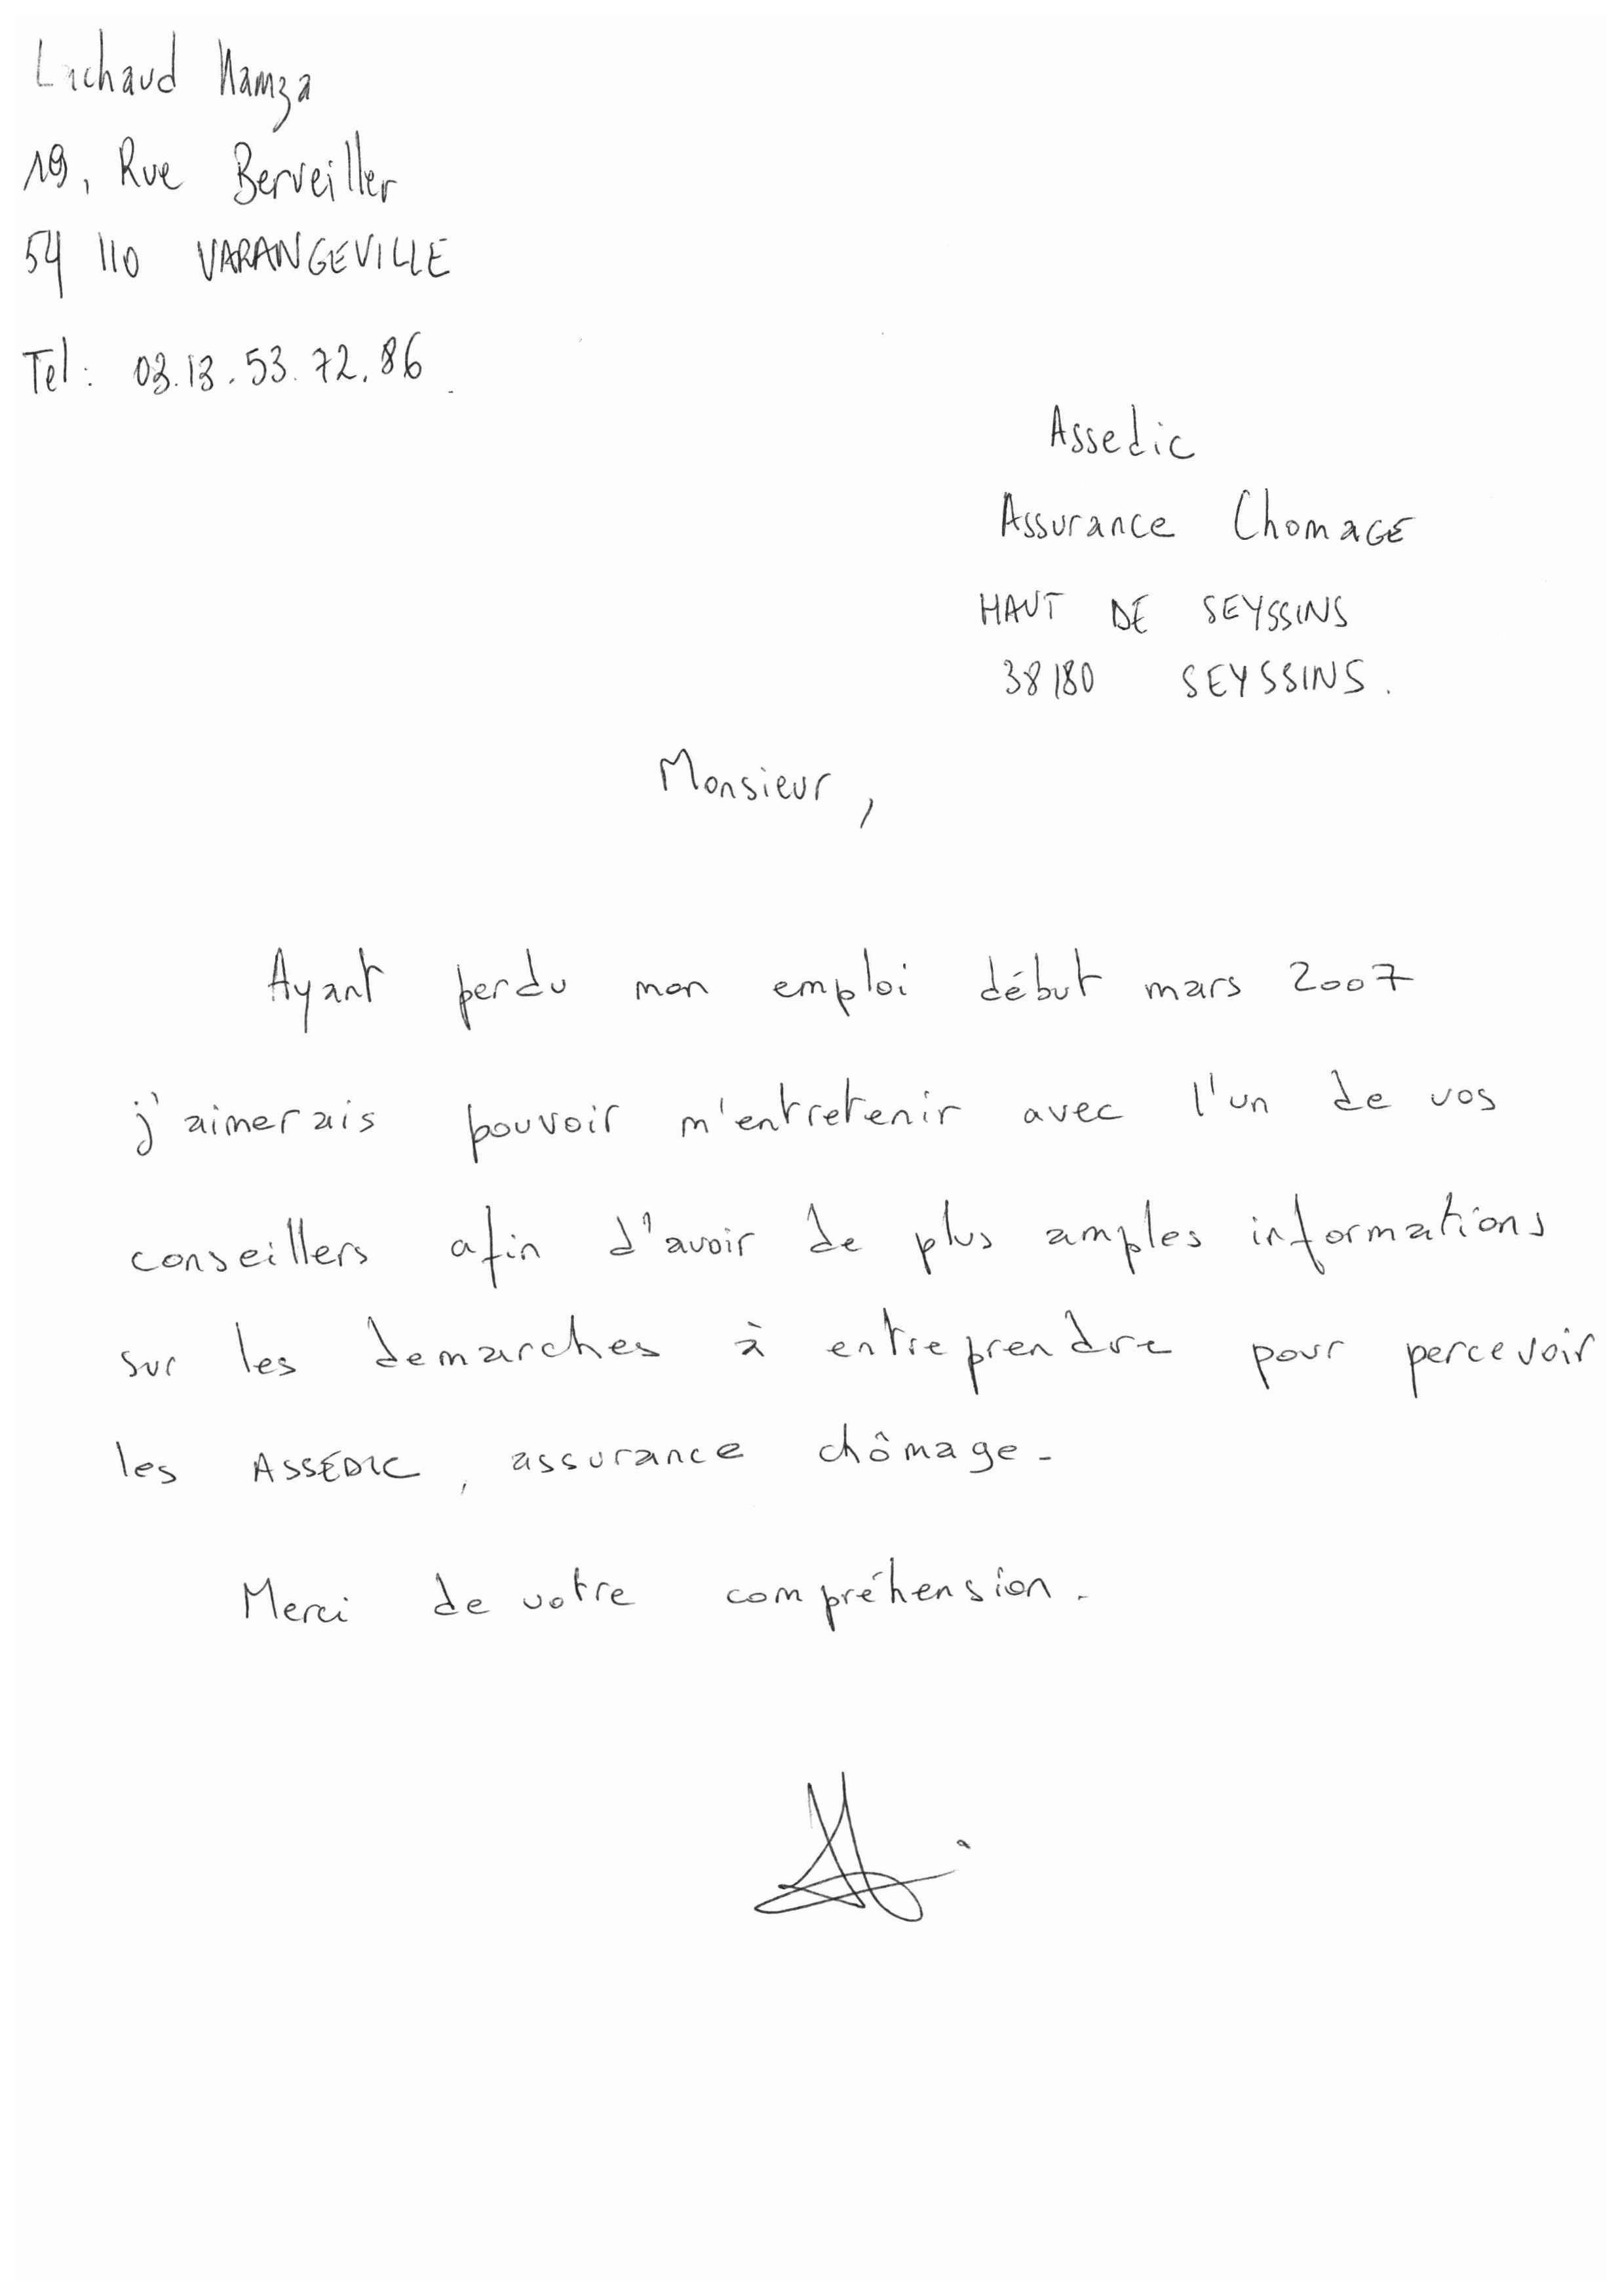 Lachaud Hamza
19, Rue Berveiller
54 110 VARANGEVILLE
Tel : 03.13.53.72.86
Assedic
Assurance ChomaGE
HAUT DE SEYSSINS
38180 SEYSSINS.
Monsieur,
Ayant perdu mon emploi début mars 2007
j'aimerais pouvoir m'entretenir avec l'un de vos
conseillers afin d'avoir de plus amples informations
sur les demarches à entreprendre pour percevoir
les ASSEDIC, assurance chômage.
Merci de votre compréhension.